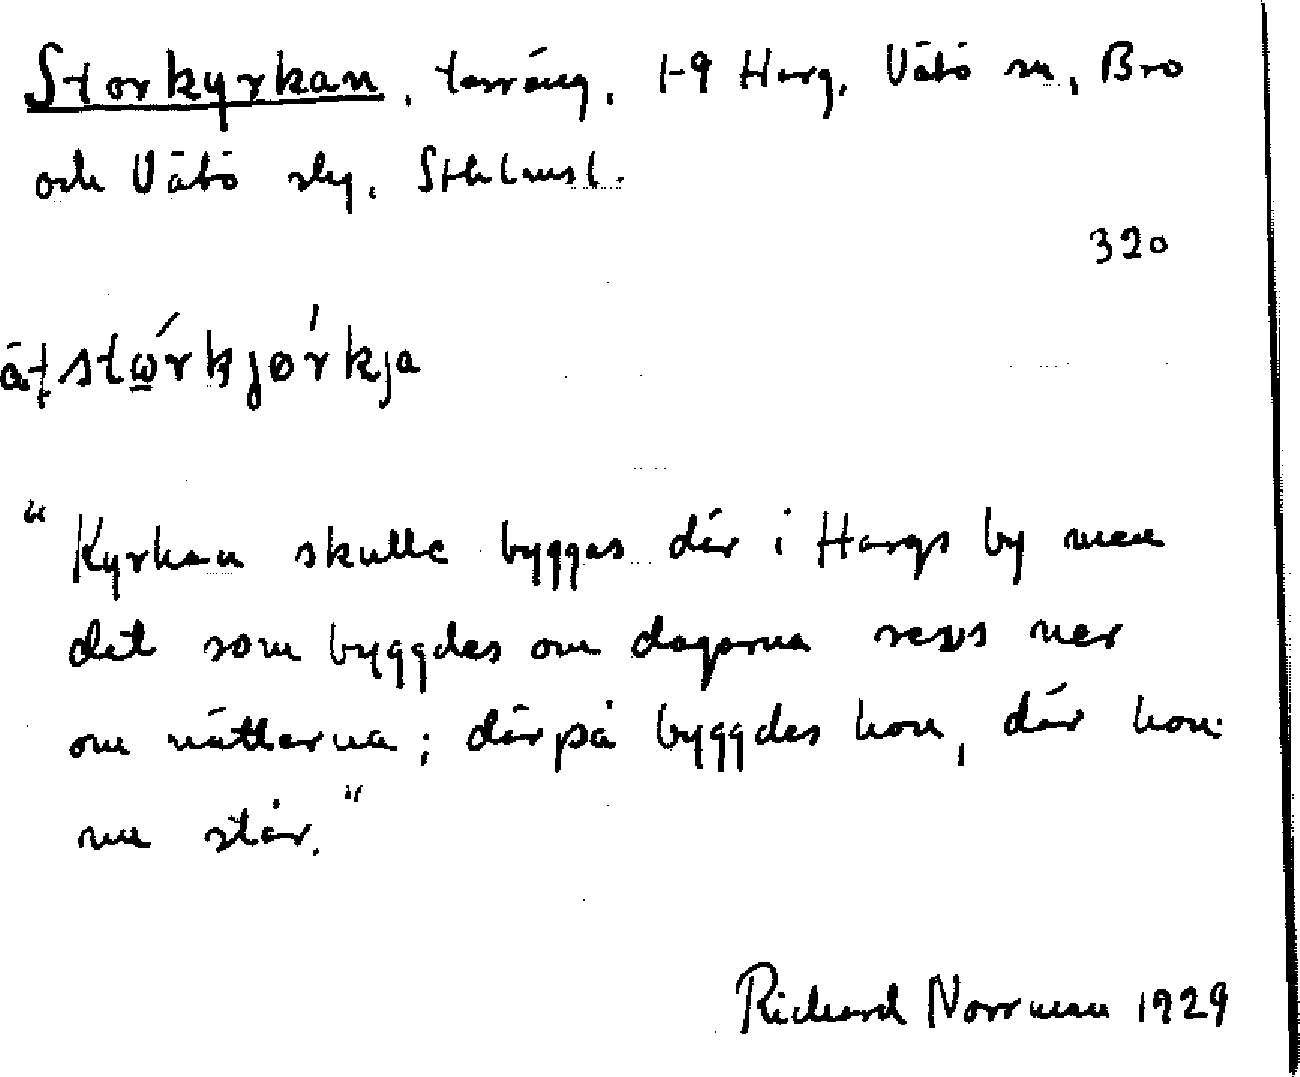 Storkyrkan, terräng, 1-9 Harg, Vätö sn, Bro
och Vätö skg, Sthlms l.
320
stωrkjørkja
"Kyrkan skulle byggas där i Hargs by men
det som byggdes om dagarna revs ner
om nätterna; därpå byggdes hon, där hon
nu står."
Richard Norrman 1929